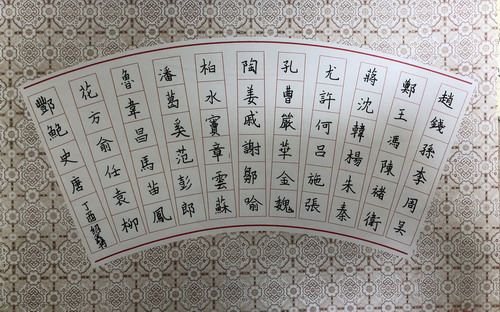 趙錢孫李周吳
鄭王馮陳褚衛
蔣沈韓楊朱秦
尤許何呂施張
孔曹嚴華金魏
陶姜戚謝鄒喻
柏水竇章雲蘇
潘葛奚范彭郎
魯韋昌馬苗鳳
花方俞任袁柳
酆鮑史唐
丁酉初